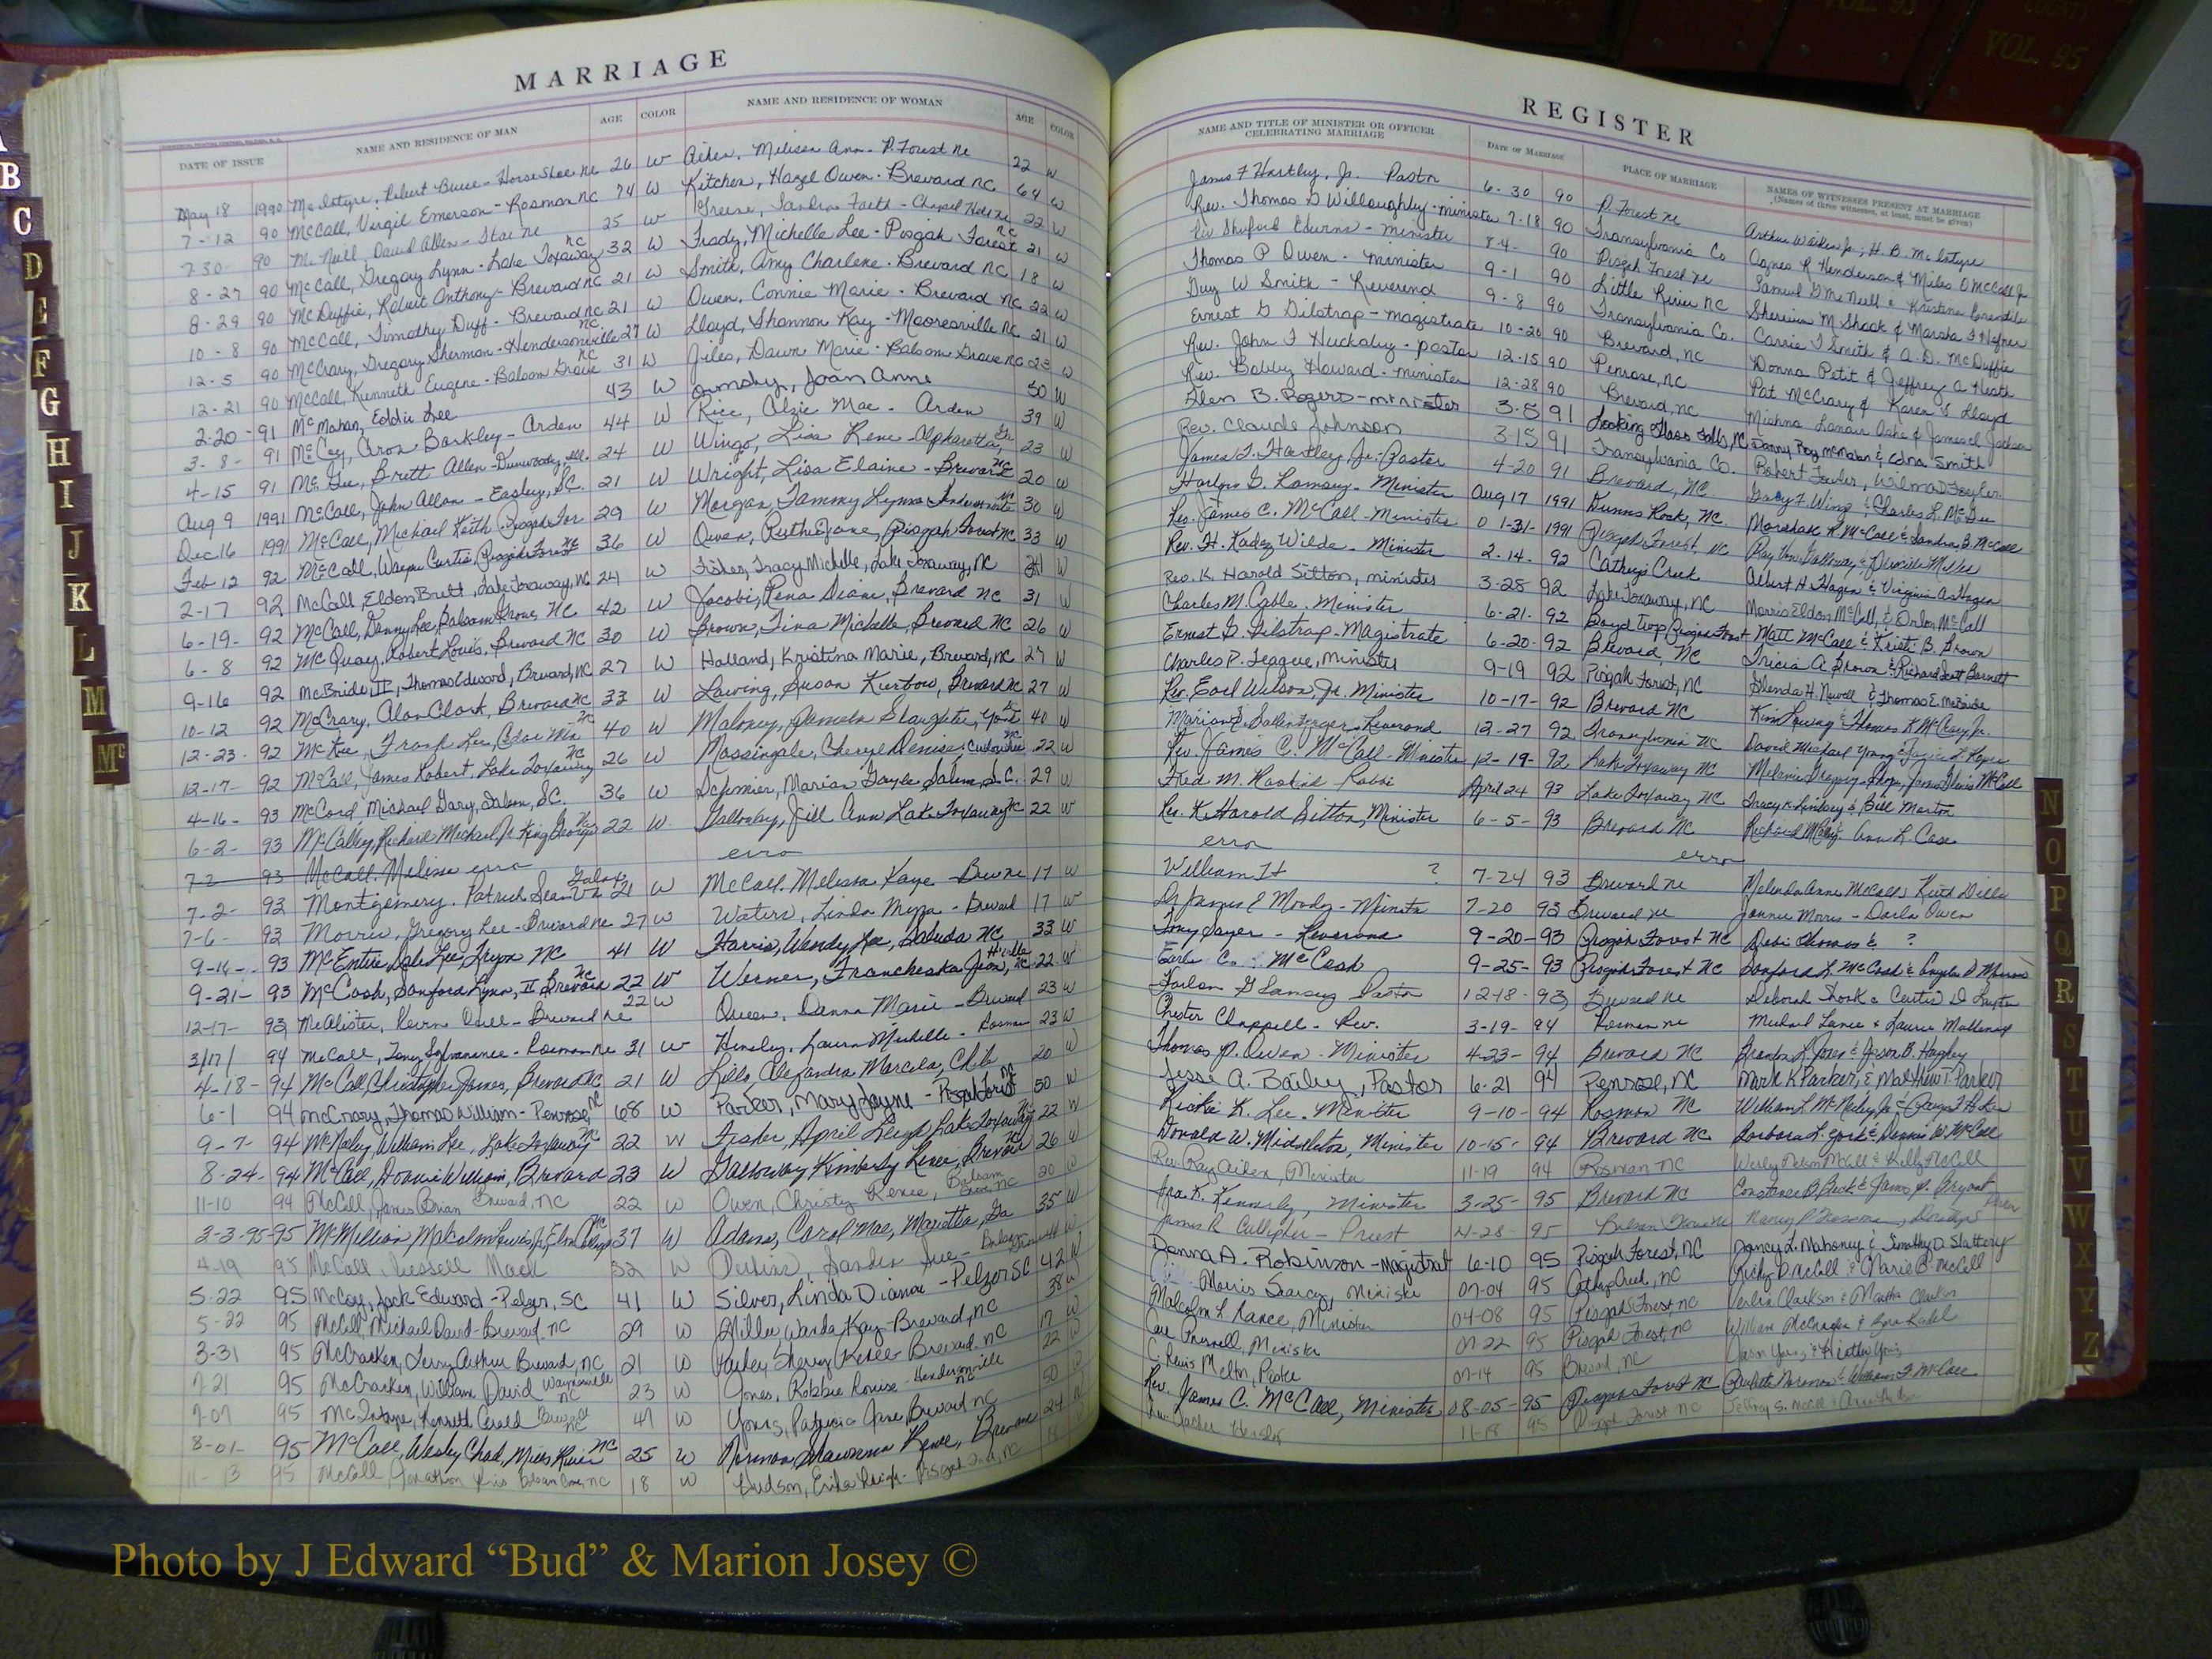 MARRIAGE
DATE OF ISSUE NAME AND RESIDENCE OF MAN AGE COLOR NAME AND RESIDENCE OF WOMAN AGE COLOR
May 18 1990 McIntyre, Robert Bruce - Horse Shoe NC 26 W Aiken, Melissa Ann - P. Forest NC 22 W
7-12 90 McCall, Virgil Emerson - Rosman NC 74 W Kitchen, Hazel Owen - Brevard NC 64 W
7-30 90 McNeill, David Allen - 25 W Greene, Sandra Faith - Chapel Hill NC 22 W
8-27 90 McCall, Gregory Lynn - Lake Toxaway NC 32 W Frady, Michelle Lee - Pisgah Forest NC 21 W
8-29 90 McDuffie, Robert Anthony - Brevard NC 21 W Smith, Amy Charlene - Brevard NC 18 W
10-8 90 McCall, Timothy Duff - Brevard NC 21 W Owen, Connie Marie - Brevard NC 22 W
12-5 90 McCrary, Gregory Sherman - Hendersonville NC 27 W Lloyd, Shannon Kay - Mooresville NC 21 W
12-21 90 McCall, Kenneth Eugene - Balsam Grove NC 31 W Giles, Dawn Marie - Balsam Grove NC 23 W
2-20-91 McMahan, Eddie Lee 43 W Ormsby, Joan Anne 50 W
3-8-91 McCoy, Aron Barkley - Arden 44 W Rice, Alzie Mae - Arden 39 W
4-15 91 McGee, Brett Allen - Dunwoody, 24 W Wingo, Lisa Rene - Alpharetta, Ga 23 W
Aug 9 1991 McCall, John Allan - Easley, SC. 21 W Wright, Lisa Elaine - Brevard NC 20 W
Dec 16 1991 McCall, Michael Keith, Pisgah For 29 W Morgan, Tammy Lynn, Hendersonville NC 30 W
Feb 12 92 McCall, Wayne Curtis, Pisgah Forest NC 36 W Owen, Ruthie Jane, Pisgah Forest NC 33 W
2-17 92 McCall, Eldon Brett, Lake Toxaway, NC 24 W Fisher, Tracy Michelle, Lake Toxaway, NC W
6-19- 92 McCall, Danny Lee, Balsam Grove, NC 42 W Jacobi, Rena Diane, Brevard NC 31 W
6-8 92 McQuay, Robert Louis, Brevard NC 30 W Brown, Tina Michelle, Brevard NC 26 W
9-16 92 McBride III, Thomas Edward, Brevard, NC 27 W Holland, Kristina Marie, Brevard, NC 27 W
10-12 92 McCrary, Alan Clark, Brevard NC 33 W Lawing, Susan Kurbow, Brevard NC 27 W
12-23- 92 McKee, Frank Lee, NC 40 W Maloney, Pamela Slaughter, 40 W
12-17- 92 McCall, James Robert, Lake Toxaway NC 26 W Massingale, Cheryl Denise, Cullowhee NC 22 W
4-16- 93 McCord, Michael Gary, Salem, SC. 36 W Marian Gayle Salem, S.C. 29 W
6-2- 93 McCalley, Richard Michael Jr. King George Va 22 W Galloway, Jill Ann Lake Toxaway NC 22 W
7-2 93 McCall, Melissa erro erro
7-2- 93 Montgomery, Patrick Sean Galax Va 21 W McCall, Melissa Kaye - Brev NC 17 W
7-6- 93 Morris, Gregory Lee - Brevard NC 27 W Waters, Linda - Brevard 17 W
9-16-- 93 McEntire, Dale Lee, Tryon NC 41 W Harris, Wendy Lee, Saluda NC 33 W
9-21- 93 McCosh, Sanford Lynn, II Brevard NC 22 W Werner, Francheska Jean, H'ville NC 22 W
12-17- 93 McAlister, Kevin - Brevard NC 22 W Queen, Donna Marie - Brevard 23 W
3/17/ 94 McCall, Tony Sylvanence - Rosman NC 31 W Hensley, Laura Michelle - Rosman 23 W
4-18- 94 McCall Christopher James, Brevard NC 21 W Lillo, Alejandra Marcela, Chile 20 W
6-1 94 McCrary, Thomas William - Penrose, NC 68 W Parker, Mary Jayne - Pisgah Forest NC 50 W
9-7- 94 McNeely, William Lee, Lake Toxaway NC 22 W Fisher, April Leigh Lake Toxaway NC 22 W
8-24- 94 McCall, Donnie William, Brevard 23 W Galloway Kimberly Renee, Brevard NC 26 W
11-10 94 McCall, James Brian Brevard, NC 22 W Owen, Christy Renee, Balsam Grove NC 20 W
3-3-95-95 McMillian Malcolm Lewis, Jr, NC 37 W Adams, Carol Mae, Marietta, Ga 35 W
4-19 95 McCall, Russell Mack 52 W Sandra Sue - Balsam Grove 44 W
5-22 95 McCoy, Jack Edward - Pelzer, SC 41 W Silver, Linda Dianne - Pelzer SC 42 W
5-22 95 McCall, Michael David - Brevard, NC 29 W Wanda Kay - Brevard, NC 38 W
3-31 95 McCracken, Terry Arthur Brevard, NC 21 W Sherry Renee - Brevard, NC 17 W
7-21 95 McCracken, William David Waynesville NC 23 W Jones, Robbie Louise - Hendersonville NC 22 W
7-07 95 McIntyre, Kenneth Gerald Brevard NC 47 W Patricia Jane, Brevard NC 50 W
8-01- 95 McCall, Wesley Chad, Mills River NC 25 W Norman, Shawnna Renee, Brevard 24 W
11-13 95 McCall, Jonathon NC 18 W Hudson, Erika Leigh - Pisgah NC
REGISTER
NAME AND TITLE OF MINISTER OR OFFICER CELEBRATING MARRIAGE DATE OF MARRIAGE PLACE OF MARRIAGE NAMES OF WITNESSES PRESENT AT MARRIAGE
(Names of three witnesses, at least, must be given)
James F Hartley, Jr. Pastor 6-30 90 P. Forest NC Arthur W Aiken Jr., H. B. McIntyre
Rev. Thomas D Willoughby - minister 7-18 90 Transylvania Co Agnes R Henderson & Miles O McCall Jr
Shuford Edwins - minister 8-4- 90 Pisgah Forest NC Samuel G McNeill & Kristina
Thomas P Owen - minister 9-1 90 Little River NC Sherrian M Shook & Marsha F Hefner
Guy W Smith - Reverend 9-8 90 Transylvania Co. Carrie T Smith & A. D. McDuffie
Ernest G Gilstrap - magistrate 10-20 90 Brevard, NC Donna Petit & Jeffrey A Heath
Rev. John F Huckaby - pastor 12-15 90 Penrose, NC Pat McCrary & Karen S Lloyd
Rev. Bobby Howard - minister 12-28 90 Brevard, NC & James Jackson
Alan B. Rogers - minister 3-5 91 Looking Glass Falls, NC Danny Ray McMahan & Edna Smith
Rev. Claude Johnson 3-15 91 Transylvania Co. Robert Fowler, Wilma D Fowler
James F. Hartley Jr. - Pastor 4-20 91 Brevard, NC Gary F. Wingo & Charles L. McGee
Harlon G. Ramsey - Minister Aug 17 1991 Dunns Rock, NC Marshall R McCall & Sandra B. McCall
Rev. James C. McCall - Minister 01-31- 1991 Pisgah Forest, NC Galloway &
Rev. H. Kadez Wilde - Minister 2-14- 92 Cathey's Creek Albert H Hagen & Virginia A. Hagen
Rev. K. Harold Sitton, minister 3-28 92 Lake Toxaway, NC Morris Eldon McCall, & McCall
Charles M. Cable - Minister 6-21- 92 Boyd Twp Pisgah Forest Matt McCall & Kristi B. Brown
Ernest G. Gilstrap - Magistrate 6-20- 92 Brevard, NC Tricia A. Brown & Richard Scott Barnett
Charles P. Teague, Minister 9-19 92 Pisgah Forest, NC Glenda H. Newell & Thomas E. McBride
Rev. Earl Wilson, Jr. Minister 10-17- 92 Brevard NC Kim Lawing & Thomas K McCrary Jr.
Reverend 12-27 92 Transylvania NC David Michael Young &
Rev. James C. McCall - Minister 12-19- 92 Lake Toxaway NC Melanie McCall
Fred M. Raskind Rabbi April 24 93 Lake Toxaway NC Tracy K Lindsey & Bill Morton
Rev. K. Harold Sitton, Minister 6-5- 93 Brevard NC Ann L. Case
erro erro
William H ? 7-24 93 Brevard NC Melinda Anne McCall & Keith Dills
Dr James E Moody - Minister 7-20 93 Brevard NC Jonnie Morris - Darla Owen
Tony Sayer - Reverend 9-20-93 Pisgah Forest NC Debi Thomas & ?
Earle C. McCosh 9-25- 93 Pisgah Forest NC Sanford L McCosh &
Harlon G Ramsey Pastor 12-18-93 Brevard NC Deborah Shook & Curtis D
Chester Chappell - Rev. 3-19- 94 Rosman NC Michael Lance & Laurie
Thomas P. Owen - Minister 4-23- 94 Brevard NC Brandon L. Jones & Jason B. Hagley
Jesse A. Bailey, Pastor 6-21 94 Penrose, NC Mark K Parker, & Matthew T. Parker
Rickie K. Lee - Minister 9-10- 94 Rosman NC William L McNeely, Jr &
Donald W. Middleton, Minister 10-15- 94 Brevard NC Barbara L. York & Dennis W. McCall
Rev. Ray Aiken, Minister 11-19 94 Rosman NC Wesley McCall & Kelly McCall
Ira K. Kennerly, Minister 3-25- 95 Brevard NC Constance B. Beck & James P. Bryant
James R Culligher - Priest 4-28- 95 Balsam Grove NC Nancy
Donna A. Robinson - Magistrate 6-10 95 Pisgah Forest, NC Nancy L. Mahoney & Timothy D. Slattery
Morris Searcy, Minister 07-04 95 Cathey Creek, NC Ricky D. McCall & Marie B. McCall
Malcolm L Rance, Minister 04-08 95 Pisgah Forest, NC Verlin Clarkson & Martha Clarkson
Carl Minister 07-22 95 Pisgah Forest, NC William McCracken &
C. Lewis Melton, Pastor 07-14 95 Brevard, NC Jason Young & Heather Young
Rev. James C. McCall, Minister 08-05-95 Pisgah Forest NC Paulette Norman & William F McCall
11-18 95 Pisgah Forest NC Jeffrey S. McCall &
A
B
C
D
E
F
G
H
I
J
K
L
M
Mc
N
O
P
Q
R
S
T
U
V
W
X
Y
Z
VOL. 93
COUNTY
VOL. 95
Photo by J Edward “Bud” & Marion Josey ©